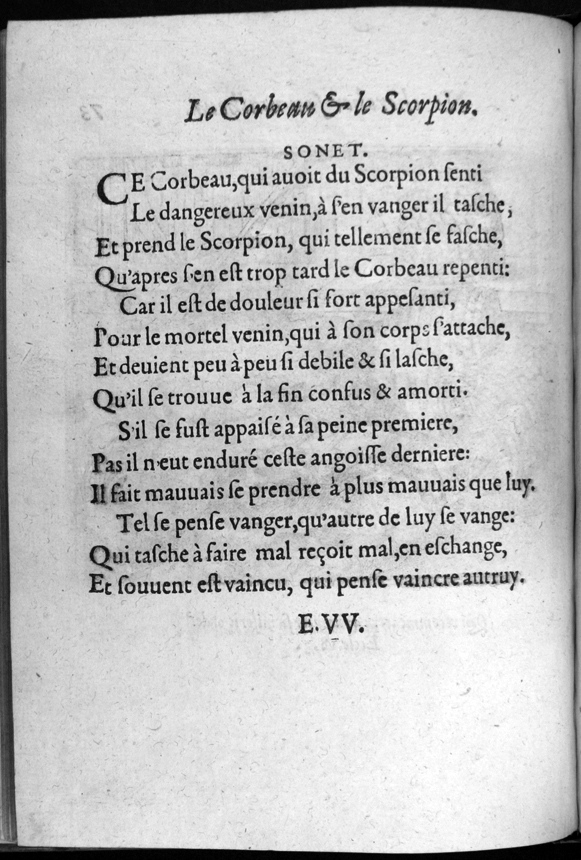 Le Corbeau & le Scorpion.
SONET.
CE Corbeau,qui auoit du Scorpion ſenti
Le dangereux venin,à ſ'en vanger il taſche,
Et prend le Scorpion, qui tellement ſe faſche,
Qu'apres ſ'en eſt trop tard le Corbeau repenti:
Car il eſt de douleur ſi fort appeſanti,
Pour le mortel venin,qui à ſon corps ſ'attache,
Et deuient peu à peu ſi debile & ſi laſche,
Qu'il ſe trouue à la fin confus & amorti.
S'il ſe fuſt appaiſé à ſa peine premiere,
Pas il n'eut enduré ceſte angoiſſe derniere:
Il fait mauuais ſe prendre à plus mauuais que luy.
Tel ſe penſe vanger,qu'autre de luy ſe vange:
Qui taſche à faire mal reçoit mal,en eſchange,
Et ſouuent eſt vaincu, qui penſe vaincre autruy.
E.VV.